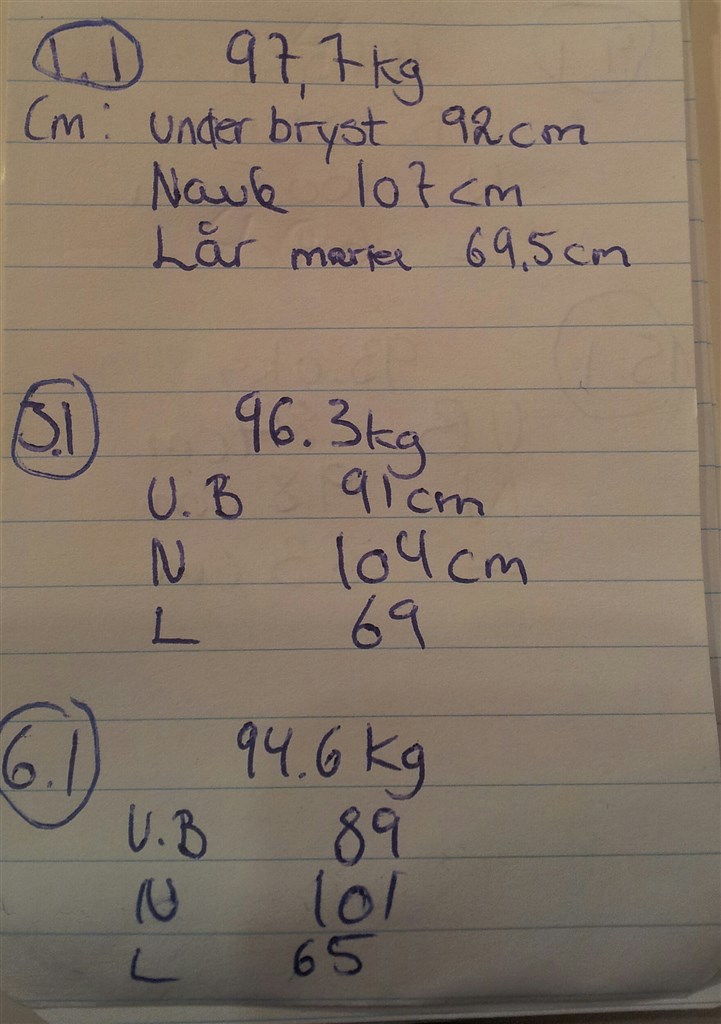 1.1 97,7 kg
Cm: under bryst 92 cm
Navle 107 cm
Lår 69,5 cm
3.1 96.3 kg
U.B 91 cm
N 104 cm
L 69
6.1 94.6 kg
U.B 89
N 101
L 65